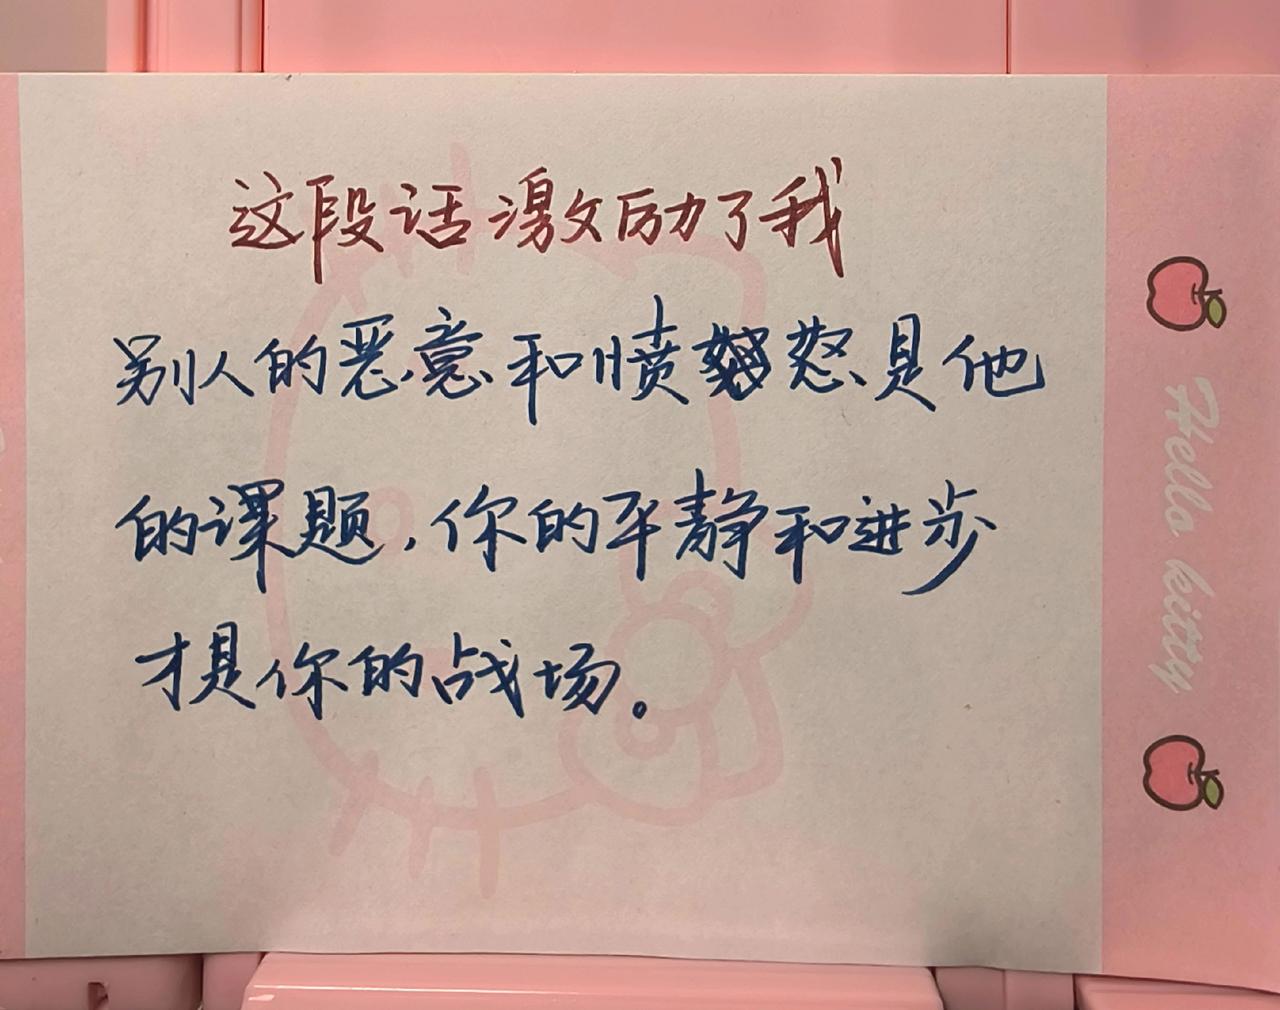 这段话激励了我
别人的恶意和愤怒是他
的课题，你的平静和进步
才是你的战场。
Hello kitty